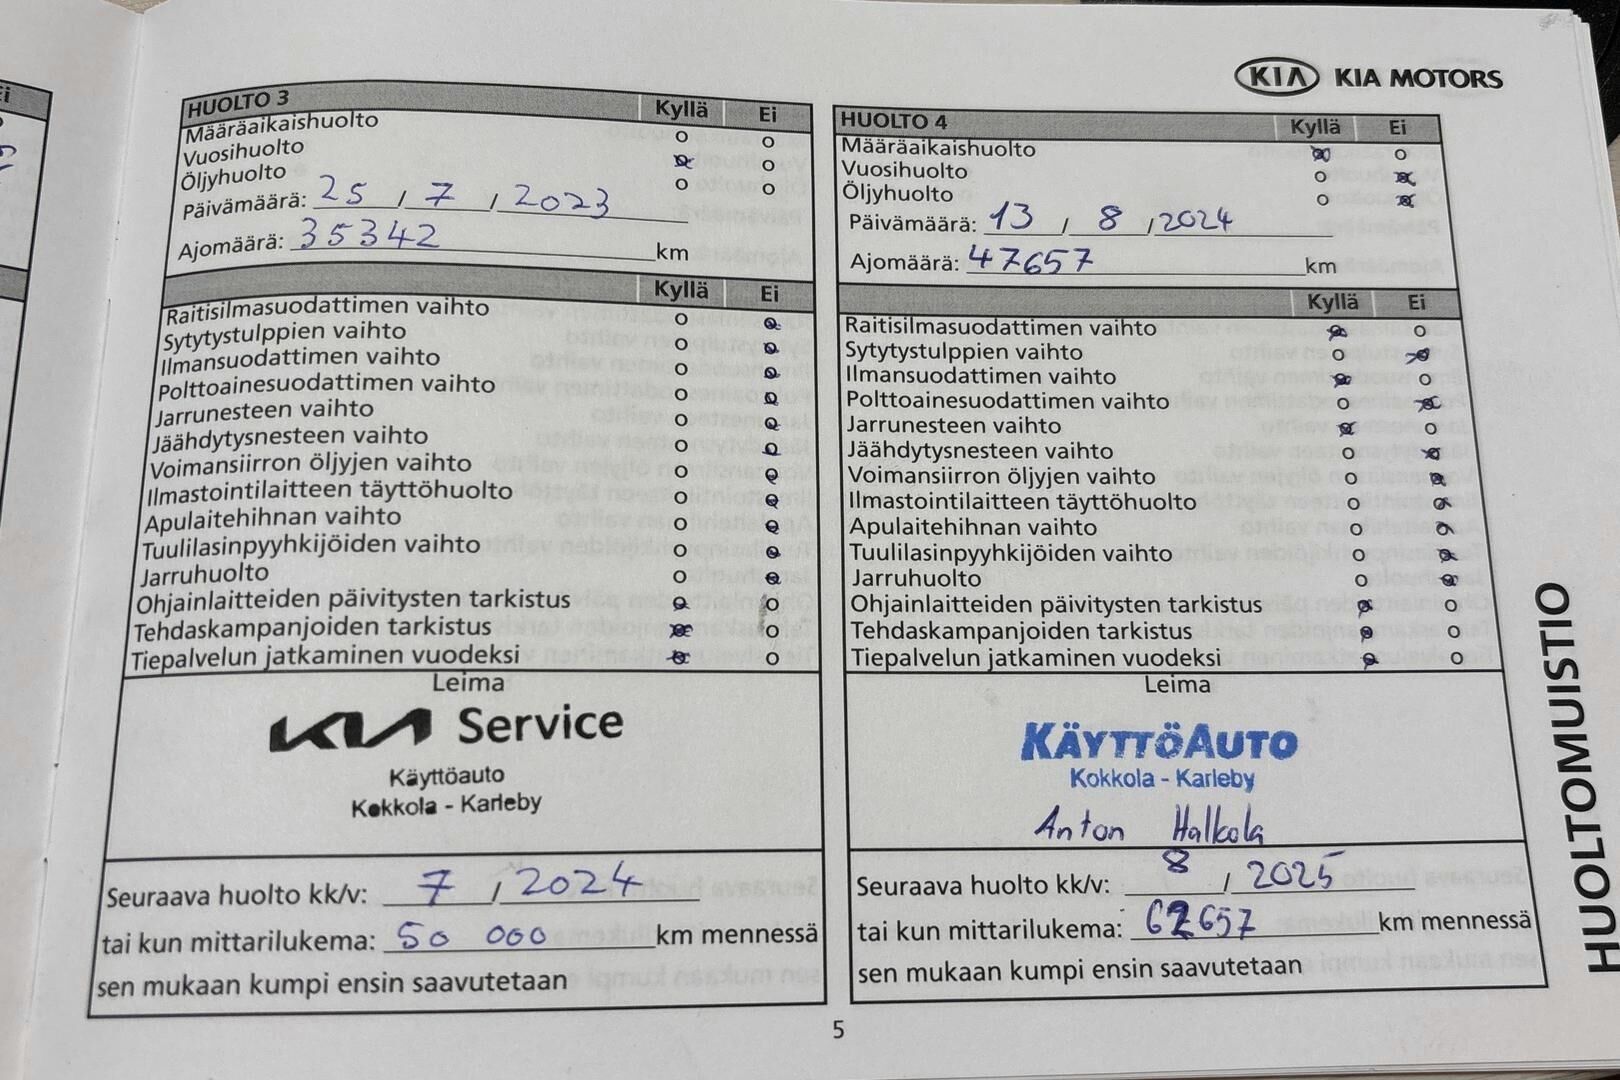 Ei
KIA KIA MOTORS
HUOLTO 3 Kyllä Ei
Määräaikaishuolto o o
Vuosihuolto o o
Öljyhuolto o o
Päivämäärä: 25 / 7 / 2023
Ajomäärä: 35342 km
Kyllä Ei
Raitisilmasuodattimen vaihto o o
Sytytystulppien vaihto o o
Ilmansuodattimen vaihto o o
Polttoainesuodattimen vaihto o o
Jarrunesteen vaihto o o
Jäähdytysnesteen vaihto o o
Voimansiirron öljyjen vaihto o o
Ilmastointilaitteen täyttöhuolto o o
Apulaitehihnan vaihto o o
Tuulilasinpyyhkijöiden vaihto o o
Jarruhuolto o o
Ohjainlaitteiden päivitysten tarkistus o o
Tehdaskampanjoiden tarkistus o o
Tiepalvelun jatkaminen vuodeksi o o
Leima
KIA Service
Käyttöauto
Kokkola - Karleby
Seuraava huolto kk/v: 7 / 2024
tai kun mittarilukema: 50 000 km mennessä
sen mukaan kumpi ensin saavutetaan
HUOLTO 4 Kyllä Ei
Määräaikaishuolto o o
Vuosihuolto o o
Öljyhuolto o o
Päivämäärä: 13 / 8 / 2024
Ajomäärä: 47657 km
Kyllä Ei
Raitisilmasuodattimen vaihto o o
Sytytystulppien vaihto o o
Ilmansuodattimen vaihto o o
Polttoainesuodattimen vaihto o o
Jarrunesteen vaihto o o
Jäähdytysnesteen vaihto o o
Voimansiirron öljyjen vaihto o o
Ilmastointilaitteen täyttöhuolto o o
Apulaitehihnan vaihto o o
Tuulilasinpyyhkijöiden vaihto o o
Jarruhuolto o o
Ohjainlaitteiden päivitysten tarkistus o o
Tehdaskampanjoiden tarkistus o o
Tiepalvelun jatkaminen vuodeksi o o
Leima
KÄYTTÖAUTO
Kokkola - Karleby
Anton Halkola
Seuraava huolto kk/v: 8 / 2025
tai kun mittarilukema: 62657 km mennessä
sen mukaan kumpi ensin saavutetaan
HUOLTOMUISTIO
5